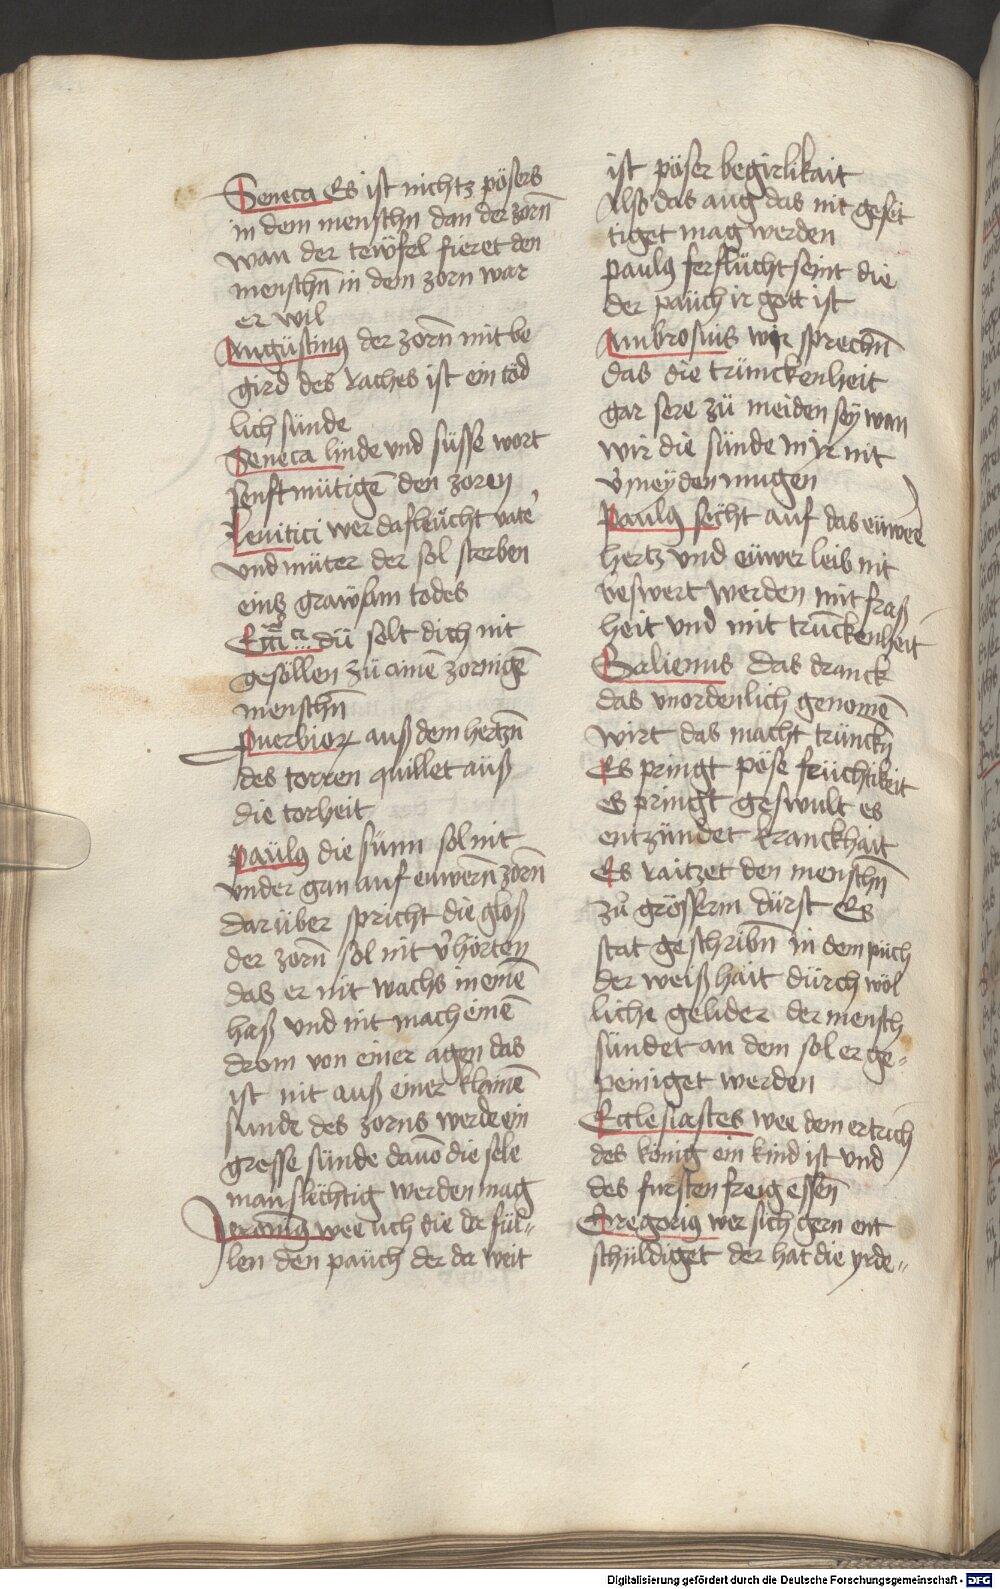 Seneca Es ist nichtz pösers
in dem menschn dan der zorn̄
wan der tewfel fieret den
menschn̄ in dem zorn war
er wil
Augüstinus der zorn̄ mit be
gird des raches ist ein töd
lich sünde
Seneca linde vnd süsse wort
senftmütigē den zoren
Leuitici wer da fleücht vate᷑
vnd müter der sol sterben
eins grawsam todes
dü solt dich nit
gesöllen zü ainē zornigē
menschn̄
Puerbior auß dem hertzn̄
des torren quillet auß
die torheit
Paülus die sünn sol nit
vnder gan auf euwern̄ zorn̄
darüber spricht die gloß
der zorn̄ sol nit v᷑hörten
das er nit wachs in einē
haß vnd nit mach einē
drom von einer agen das
ist nit auß einer klainē
sunde des zorns werde ein
gresse sünde dauō die sele
manslechtig werden mag
Jeronim9 wee uch die da fül=
len den paüch der da weit
ist pöser begirlikait
Also das aug das nit geset
tiget mag werden
paulus ferflücht seint die
der paüch ir gott ist
Ambrosius wir sprechn̄
das die trünckenheit
gar sere zü meiden sey wan
wir die sünde in ir nit
v᷑meyden mugen
Paulus secht auf das eüwere
hertz vnd eüwer leib nit
beswert werden mit fraß
heit vnd mit trūckenheit
Galienus das dranck
das vnordenlich genomē
wirt das macht trünckn̄
Es pringt pöse früchtikeit
es pringt geswult es
entzündet kranckhait
Es raitzet den menschn̄
zü grösserm dürst Es
stat geschribn̄ in dem püch
der weißhait dürch wöl
liche gelider der mensch
sündet an dem sol er ge=
peiniget werden
Ecclesiastes wee dem ertrich
des könig ein kind ist vnd
des fursten freig essen̄
Gregorius wer sich gern ent
schüldiget der hat die yrde=
Digitalisierung gefördert durch die Deutsche Forschungsgemeinschaft - DFG